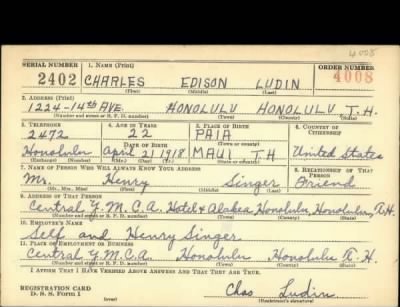 4008
SERIAL NUMBER 1. NAME (Print) ORDER NUMBER
2402 CHARLES EDISON LUDIN 4008
(First) (Middle) (Last)
2. ADDRESS (Print)
1224-14th AVE. HONOLULU HONOLULU T.H.
(Number and street or R. F. D. number) (Town) (County) (State)
3. TELEPHONE 4. AGE IN YEARS 5. PLACE OF BIRTH 6. COUNTRY OF CITIZENSHIP
2472 22 PAIA
DATE OF BIRTH (Town or county)
Honolulu April 21 1918 MAUI T.H United States
(Exchange) (Number) (Mo.) (Day) (Yr.) (State or country)
7. NAME OF PERSON WHO WILL ALWAYS KNOW YOUR ADDRESS 8. RELATIONSHIP OF THAT PERSON
Mr. Henry Singer Friend
(Mr., Mrs., Miss) (First) (Middle) (Last)
9. ADDRESS OF THAT PERSON
Central Y.M.C.A. Hotel & Alakea, Honolulu, Honolulu, T.H.
(Number and street or R. F. D. number) (Town) (County) (State)
10. EMPLOYER'S NAME
Self and Henry Singer
11. PLACE OF EMPLOYMENT OR BUSINESS
Central Y.M.C.A. Honolulu Honolulu T.H.
(Number and street or R. F. D. number) (Town) (County) (State)
I AFFIRM THAT I HAVE VERIFIED ABOVE ANSWERS AND THAT THEY ARE TRUE.
REGISTRATION CARD
D. S. S. Form 1 Chas Ludin
(over) (Registrant's signature)